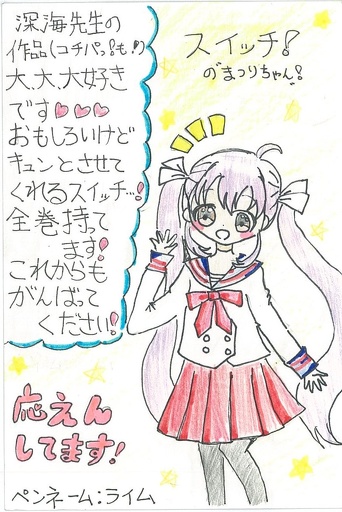 深海先生の
作品(コチパっ!も!)
大、大、大好き
です♡♡♡
おもしろいけど
キュンとさせて
くれるスイッチ…!
全巻持って
ます!
これからも
がんばって
ください!
スイッチ!
のまつりちゃん!
応えん
してます!
ペンネーム:ライム